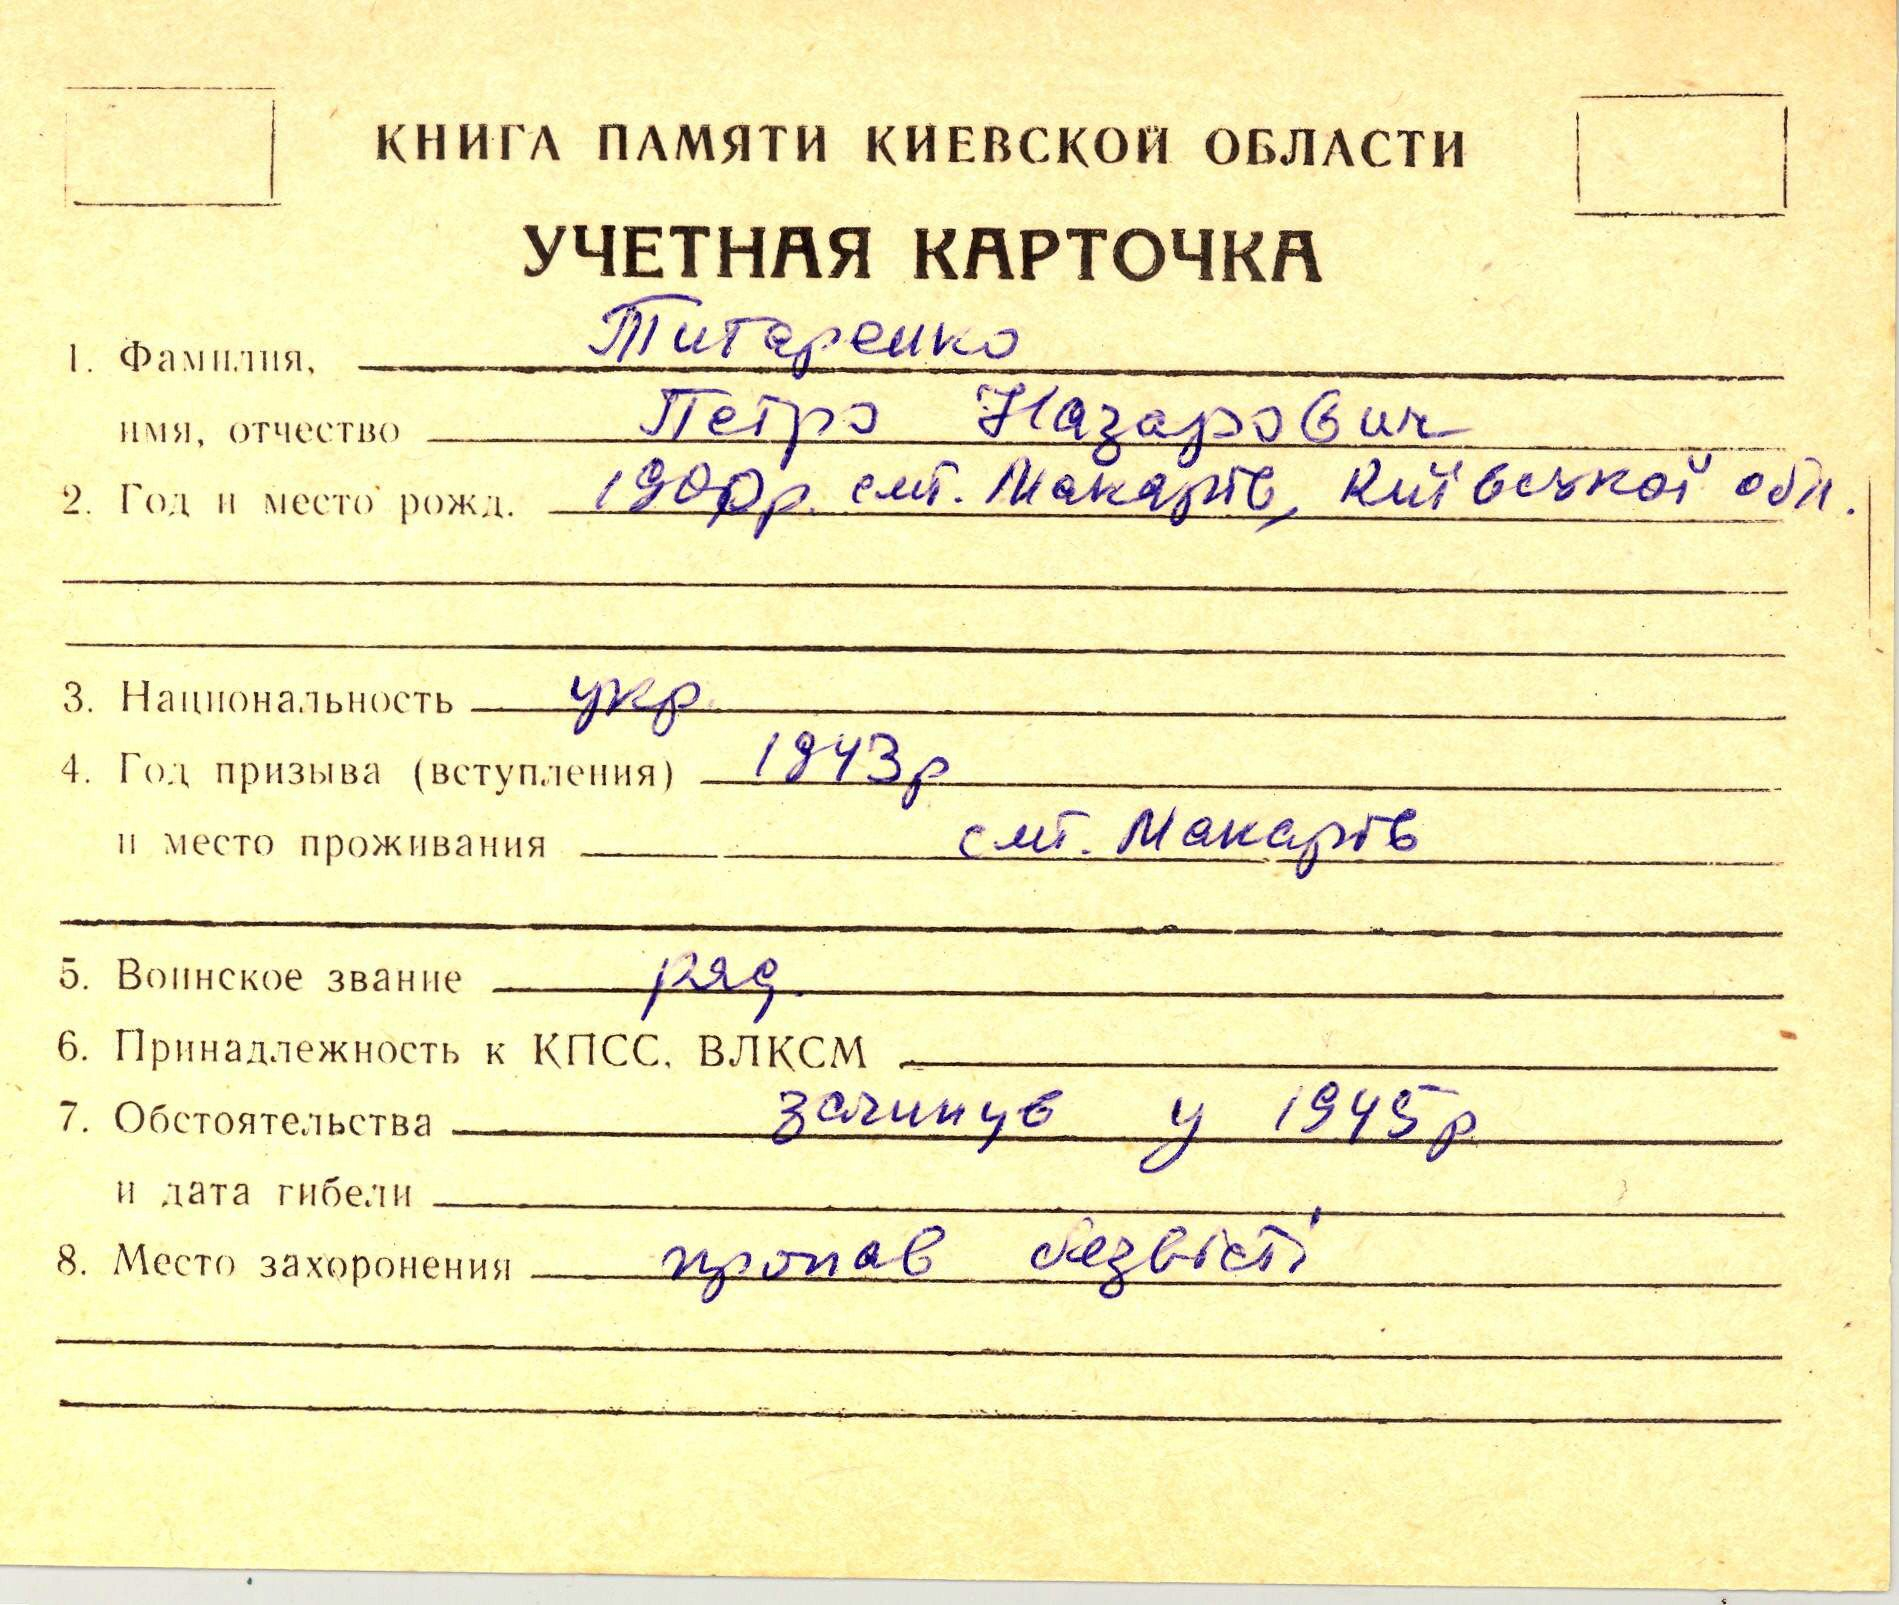 КНИГА ПАМЯТИ КИЕВСКОЙ ОБЛАСТИ
УЧЕТНАЯ КАРТОЧКА
1. Фамилия, Титаренко
имя, отчество Петро Назарович
2. Год и место рожд. 1900р. смт. Макарів, Київської обл.
3. Национальность укр.
4. Год призыва (вступления) 1943р
и место проживания смт. Макарів
5. Воинское звание ряд.
6. Принадлежность к КПСС, ВЛКСМ
7. Обстоятельства загинув у 1945р
и дата гибели
8. Место захоронения пропав безвісті